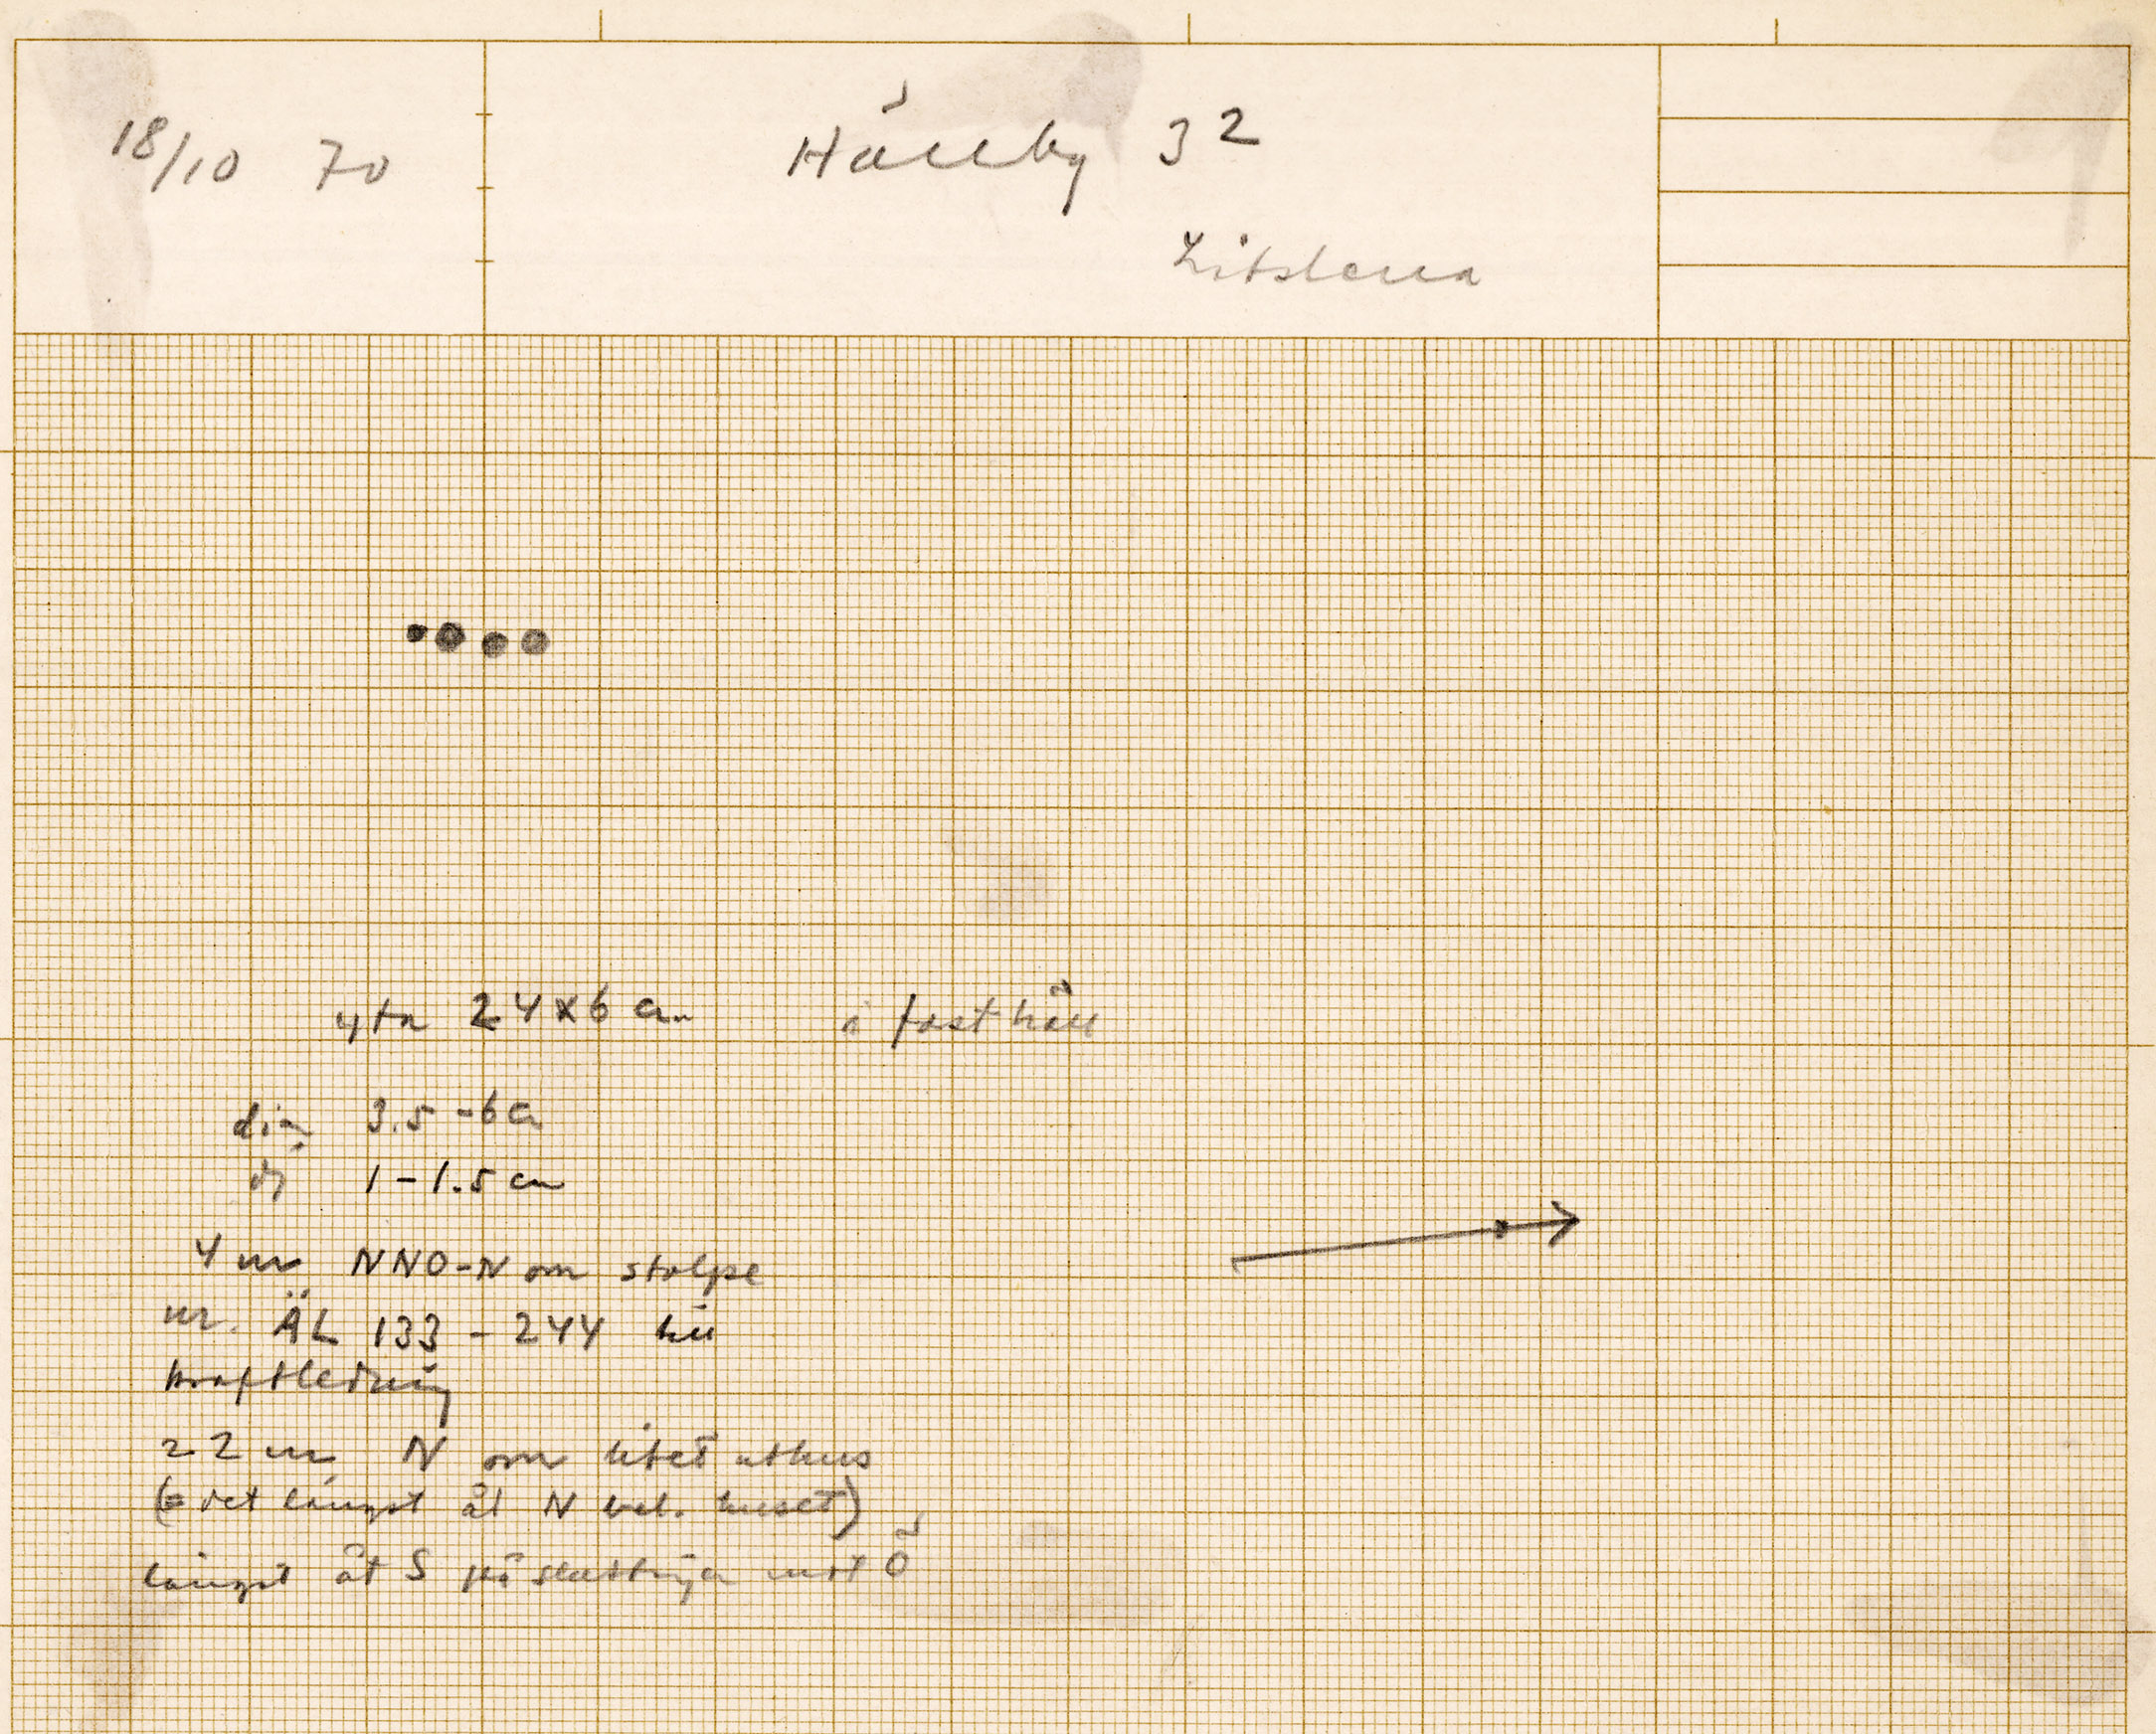 18/10 70
Hällby 3²
Litslena
yta 24x6 cm i fast häll
dia 3.5-6 cm
dj 1-1.5 cm
4 m NNO-N om stolpe
nr. ÄL 133-244 till
kraftledning
22 m N om litet uthus
(= det längst åt N bel. huset)
längst åt S på sluttninga mot Ö